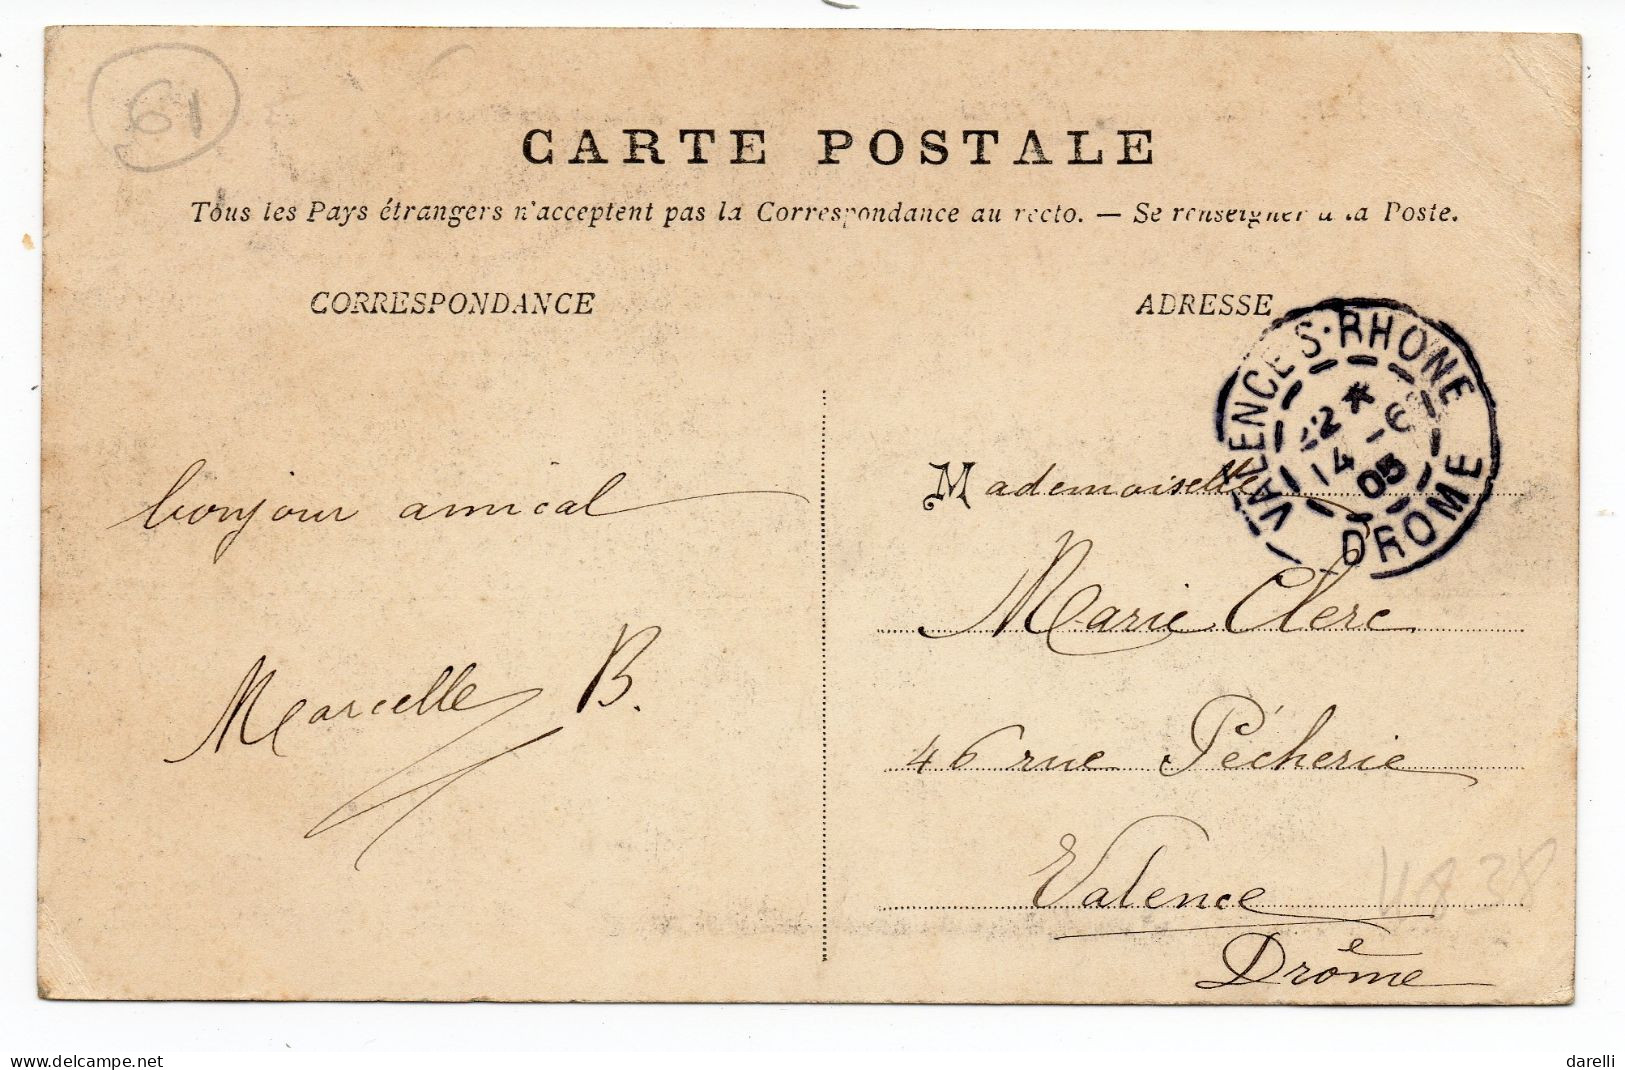 61
CARTE POSTALE
Tous les Pays étrangers n'acceptent pas la Correspondance au recto. — Se renseigner à la Poste.
CORRESPONDANCE
ADRESSE
VALENCE S. RHONE
22 * 14 -6 05
DROME
bonjour amical
Marcelle B.
Mademoiselle
Marie Clerc
46 rue Pécherie
Valence
Drôme
delcampe.net
darelli